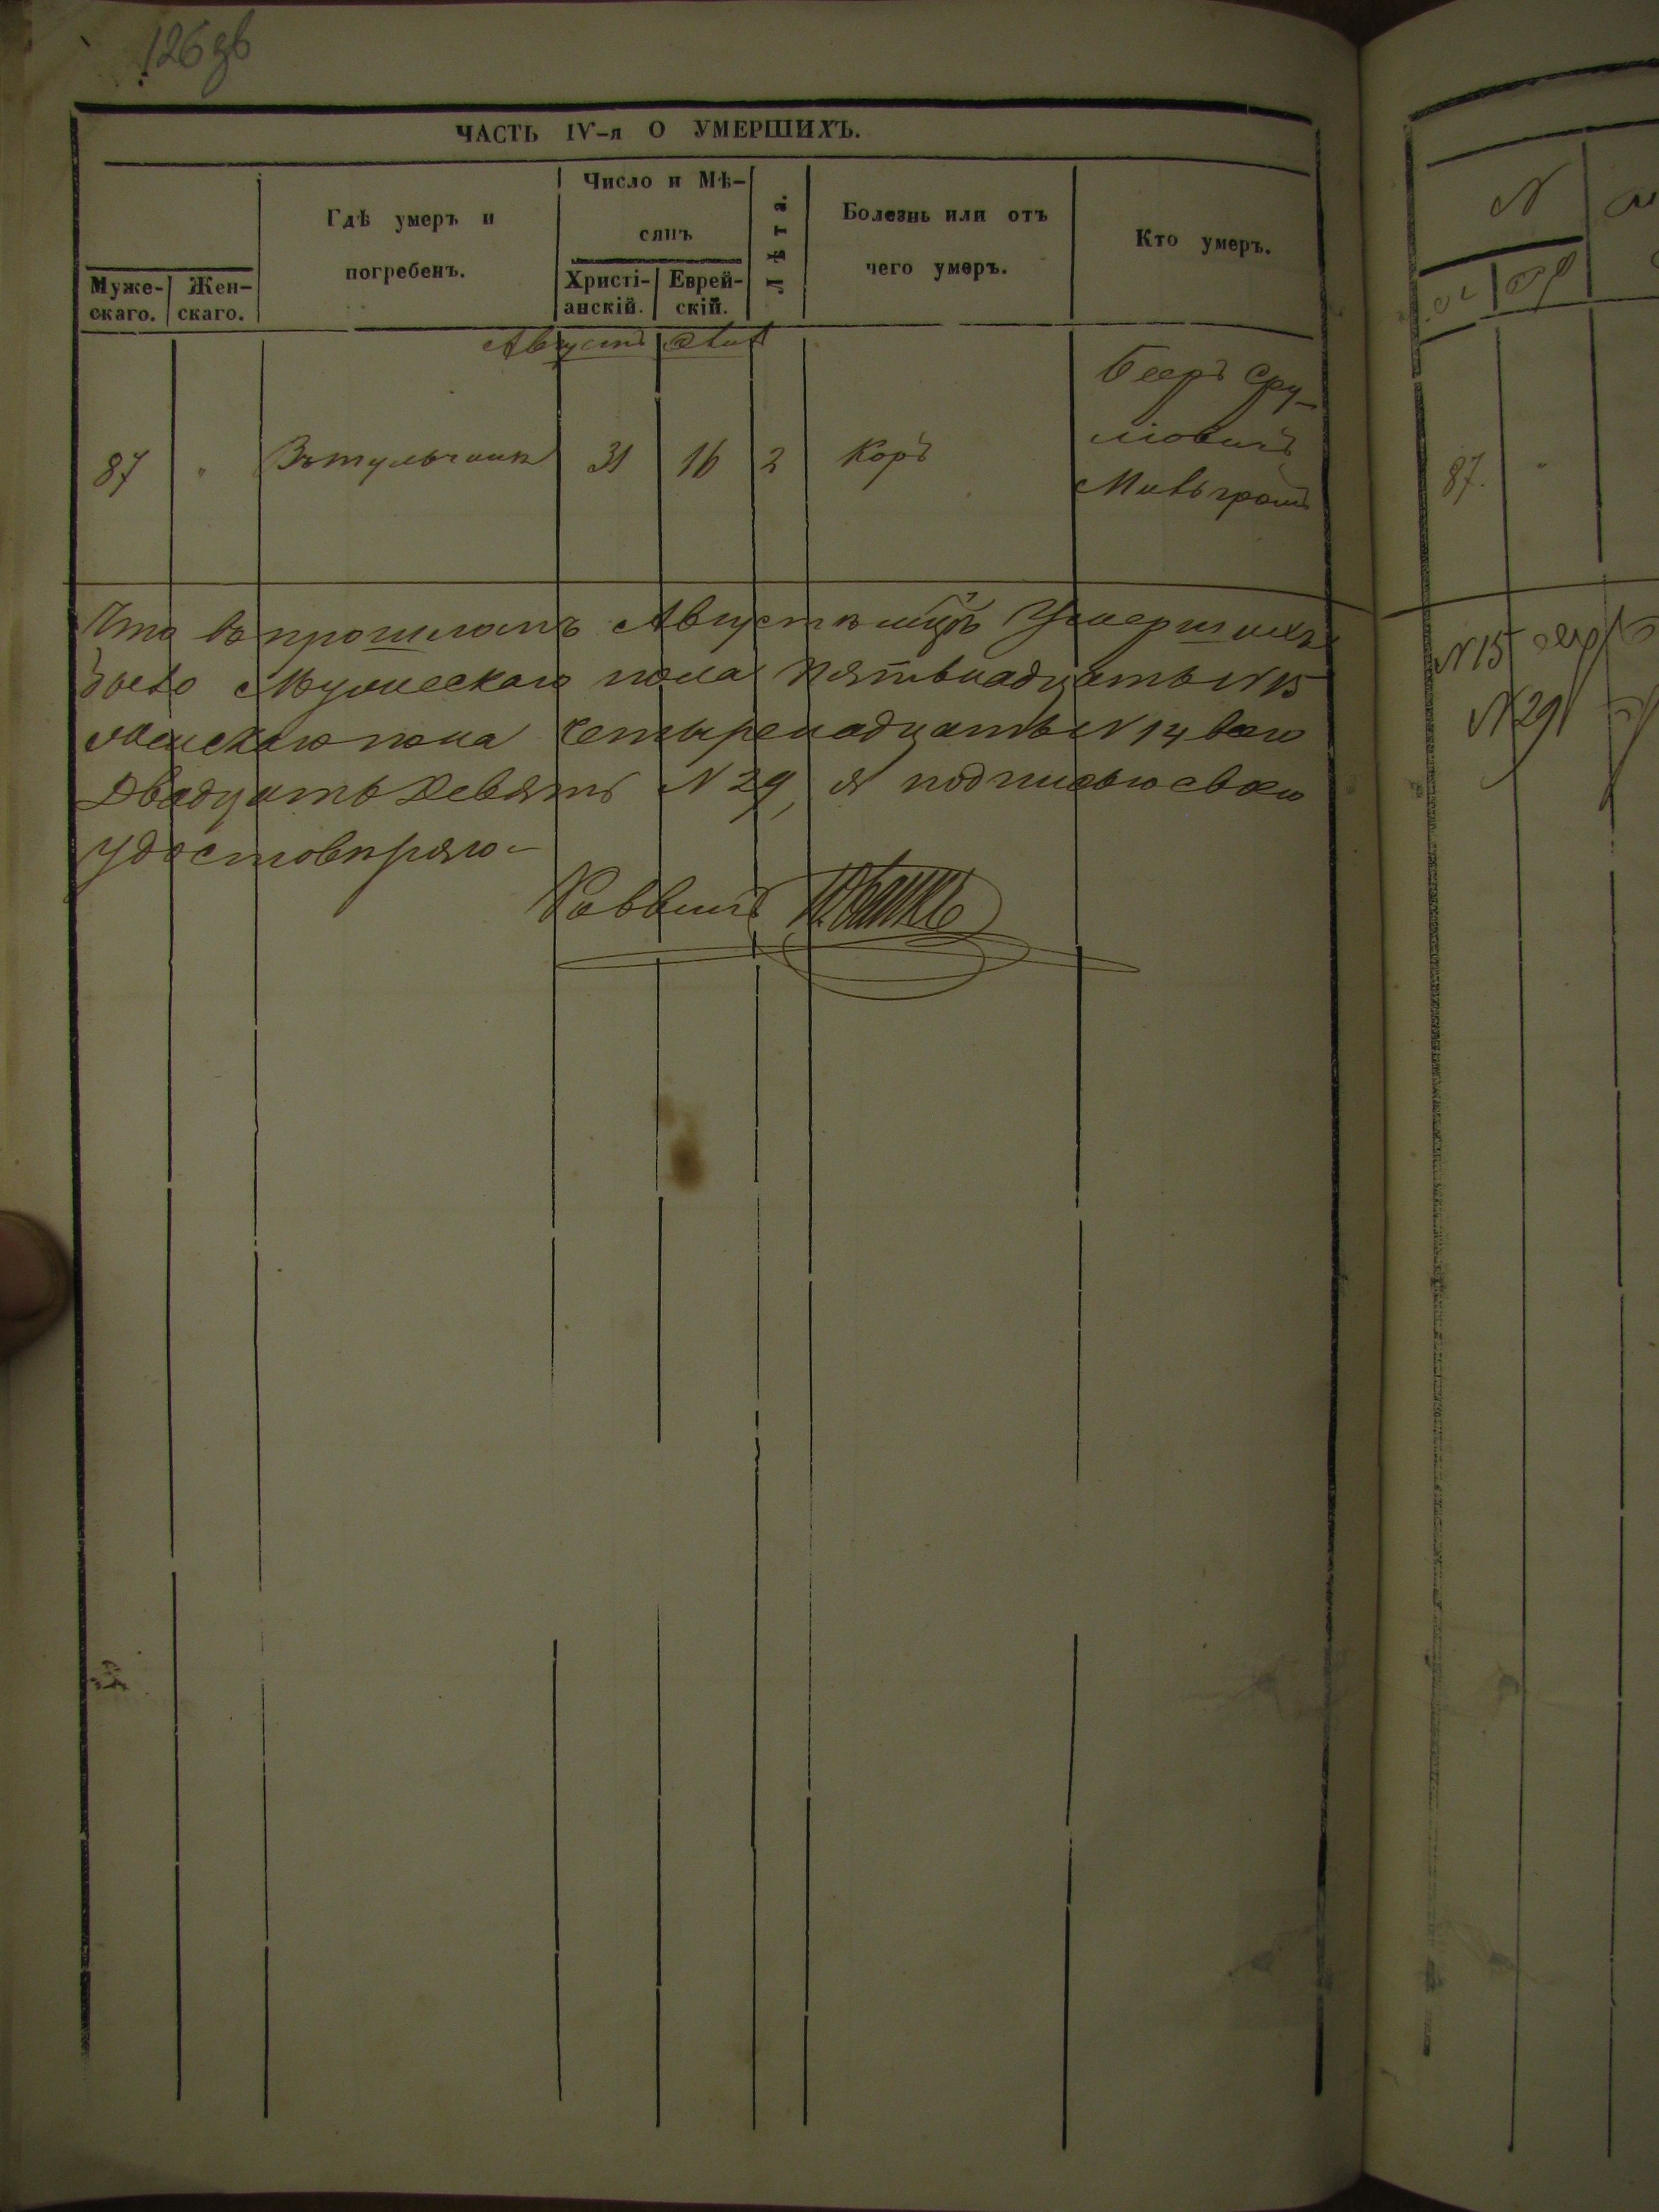 126 зв
ЧАСТЬ IV-я О УМЕРШИХЪ.
Муже-
скаго.
Жен-
скаго.
Гдѣ умеръ и
погребенъ.
Число и Мѣ-
сяцъ
Христі-
анскій.
Еврей-
скій.
Лѣта.
Болезнь или отъ
чего умеръ.
Кто умеръ.
Августъ
87 " Вътульчинѣ 31 16 2 Коръ
Бееръ Сру-
ліовичъ
Мильгромъ
Что въ прошломъ Августѣ мцѣ Умершихъ
было Мужескаго пола пятьнадцать N 15
женскаго пола Четыренадцать N 14 всего
Двадцать Девять N 29, я подписью своею
удостовѣряю
Раввинъ
N
87. "
N 15
N 29